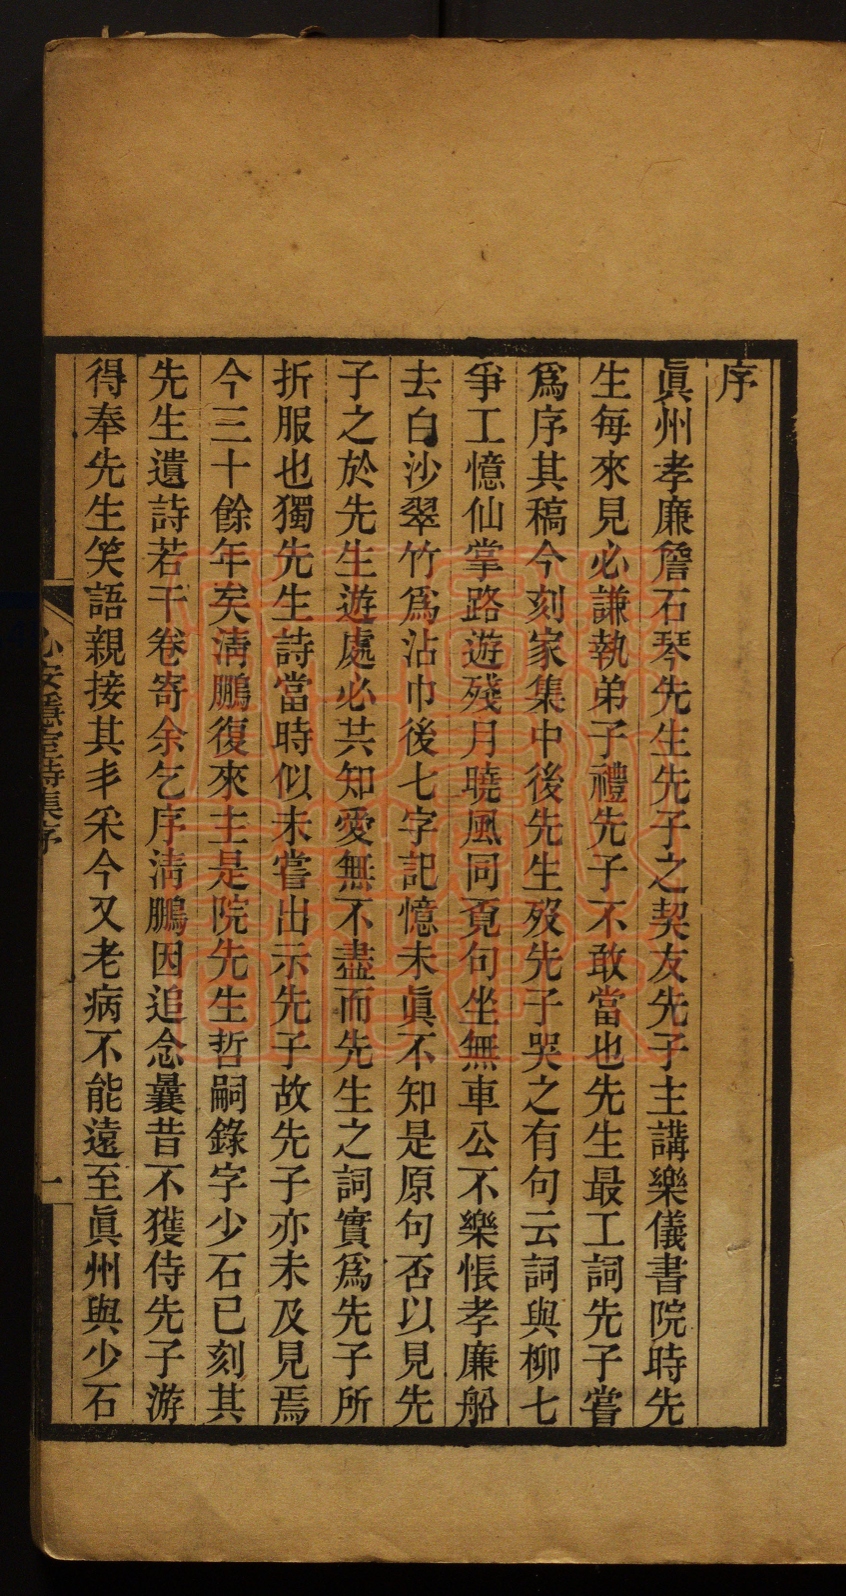 序
眞州孝廉詹石琴先生先子之契友先子主講樂儀書院時先
生每來見必謙執弟子禮先子不敢當也先生最工詞先子嘗
爲序其稿今刻家集中後先生歿先子哭之有句云詞與柳七
爭工憶仙掌路遊殘月曉風同覓句坐無車公不樂悵孝廉船
去白沙翠竹爲沾巾後七字記憶未眞不知是原句否以見先
子之於先生遊處必共知愛無不盡而先生之詞實爲先子所
折服也獨先生詩當時似未嘗出示先子故先子亦未及見焉
今三十餘年矣淸鵬復來主是院先生哲嗣錄字少石已刻其
先生遺詩若干卷寄余乞序淸鵬因追念曩昔不獲侍先子游
得奉先生笑語親接其丰采今又老病不能遠至眞州與少石
心安隱室詩集序
一